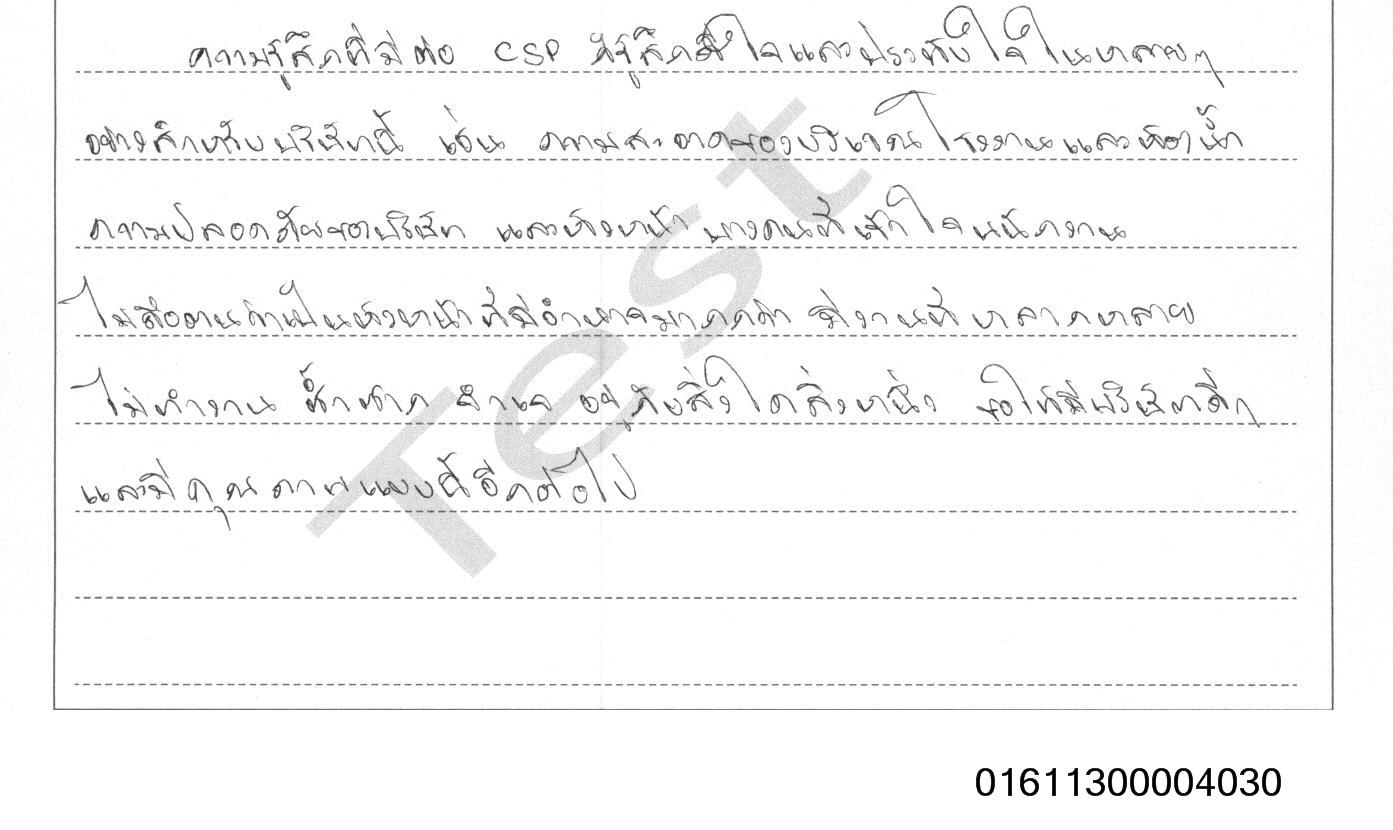 ความรู้สึกที่มีต่อ CSP ก็รู้สึกดีใจและประทับใจในหลายๆ
อย่างสำหรับบริษัทนี้ เช่น ความสะอาดของบริเวณโรงงานและห้องน้ำ
ความปลอดภัยของบริษัท และหัวหน้า บางคนที่เข้าใจพนักงาน
ไม่ถือตนว่าเป็นหัวหน้าที่มีอำนาจมากกว่า มีงานที่หลากหลาย
ไม่ทำงาน ซ้ำซาก จำเจ อยู่กับสิ่งใดสิ่งหนึ่ง ขอให้มีบริษัทดีๆ
และมีคุณภาพแบบนี้อีกต่อไป
Test
01611300004030